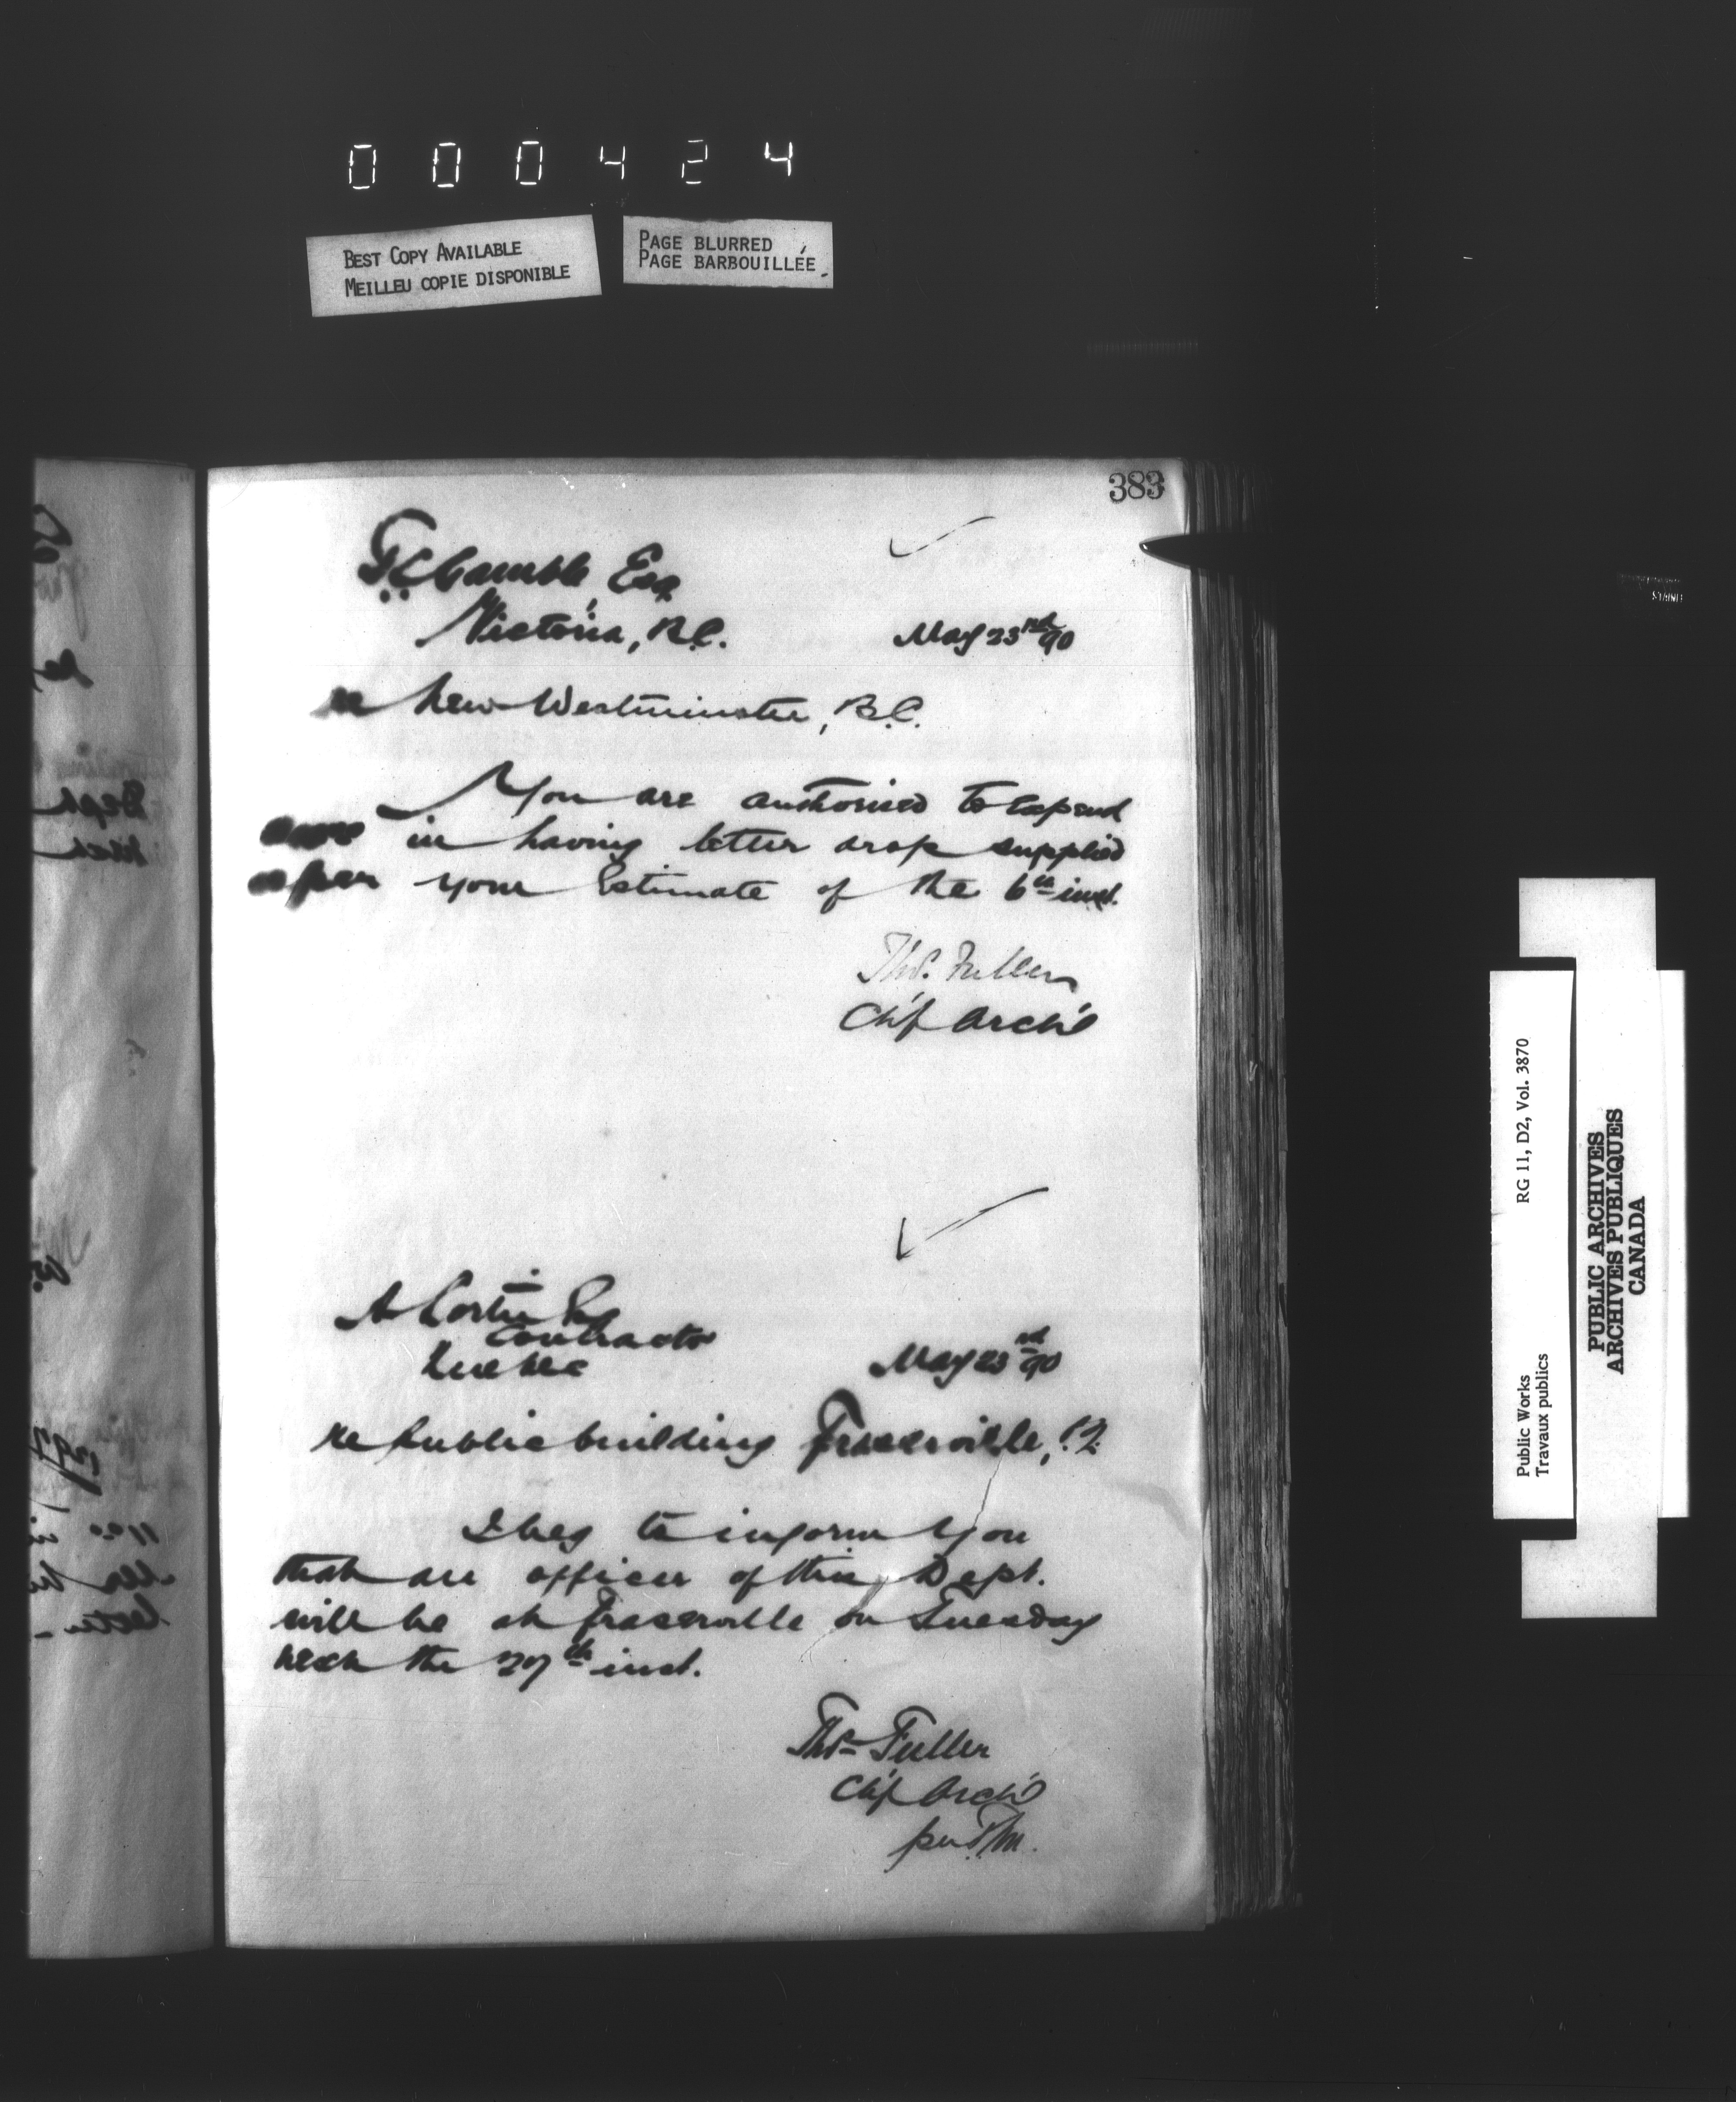 000424
BEST COPY AVAILABLE
MEILLEU COPIE DISPONIBLE
PAGE BLURRED
PAGE BARBOUILLÉE
383
F.C. Gamble, Esq.
Victoria, B.C. May 23rd 90
re New Westminster, B.C.
You are authorised to expend
in having letter drop supplied
as per your Estimate of the 6th inst.
Thos. Fuller
Ch'f Arch't
A Cortie Esq
Contractor
Quebec May 23rd 90
Re Public building Fraserville, P.Q.
I beg to inform you
that an officer of this Dept.
will be at Fraserville on Tuesday
next the 27th inst.
Thos. Fuller
Ch'f Arch't
per
Public Works
Travaux publics
RG 11, D2, Vol. 3870
PUBLIC ARCHIVES
ARCHIVES PUBLIQUES
CANADA